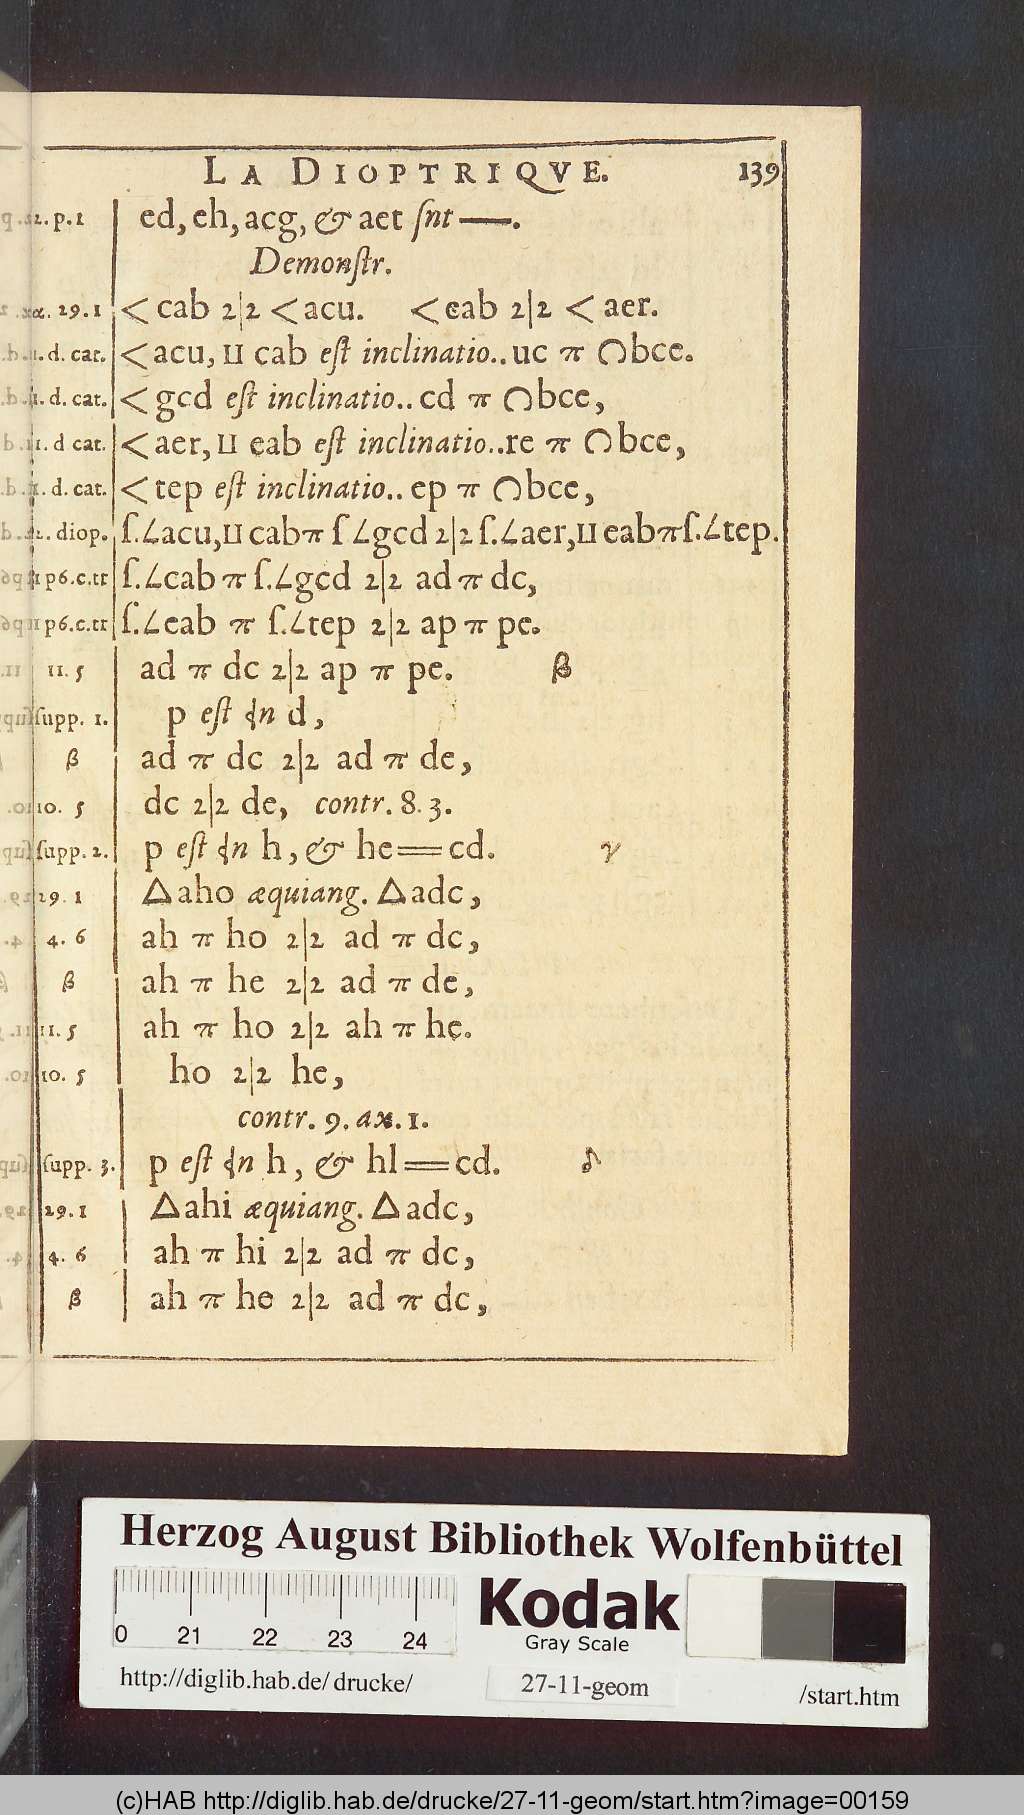 LA DIOPTRIQVE. 139
12. p. 1 ed, eh, acg, & aet ſnt —.
Demonſtr.
α. 29. 1 < cab 2|2 < acu. < eab 2|2 < aer.
1. d. cat. < acu, II cab eſt inclinatio.. uc π ∩bce.
1. d. cat. < gcd eſt inclinatio.. cd π ∩bce,
1. d cat. < aer, II eab eſt inclinatio..re π ∩bce,
1. d. cat. < tep eſt inclinatio.. ep π ∩bce,
2. diop. ſ.∠acu,II cabπ ſ∠gcd 2|2 ſ.∠aer,II eabπſ.∠tep.
11 p6.c.tr ſ.∠cab π ſ.∠gcd 2|2 ad π dc,
11 p6.c.tr ſ.∠eab π ſ.∠tep 2|2 ap π pe.
11. 5 ad π dc 2|2 ap π pe. β
ſupp. 1. p eſt ⟨n d,
β ad π dc 2|2 ad π de,
10. 5 dc 2|2 de, contr. 8. 3.
ſupp. 2. p eſt ⟨n h, & he═cd. γ
29. 1 △aho æquiang. △adc,
4. 6 ah π ho 2|2 ad π dc,
β ah π he 2|2 ad π de,
11. 5 ah π ho 2|2 ah π he.
10. 5 ho 2|2 he,
contr. 9. ax. 1.
ſupp. 3. p eſt ⟨n h, & hl═cd. δ
29. 1 △ahi æquiang. △adc,
4. 6 ah π hi 2|2 ad π dc,
β ah π he 2|2 ad π dc,
Herzog August Bibliothek Wolfenbüttel
Kodak
Gray Scale
0 21 22 23 24
http://diglib.hab.de/drucke/ 27-11-geom /start.htm
(c)HAB http://diglib.hab.de/drucke/27-11-geom/start.htm?image=00159